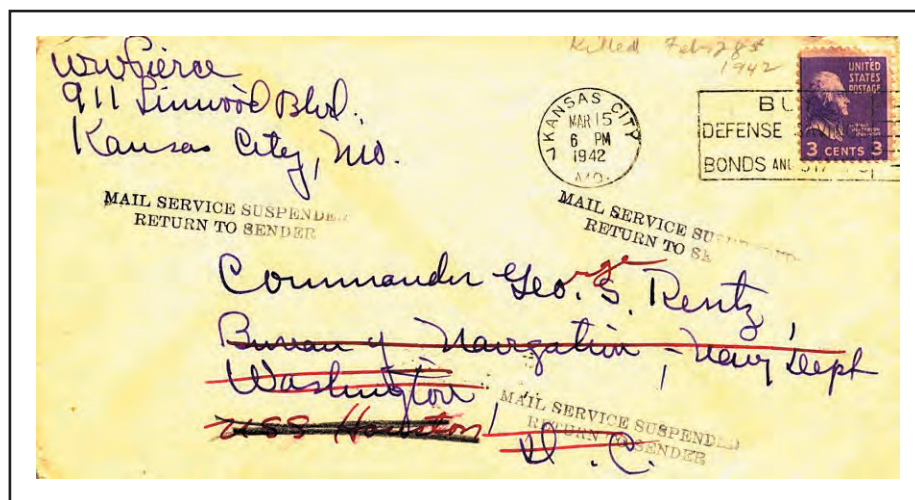 Killed Feb 28th
1942
WW Pierce
911 Linwood Blvd.
Kansas City, Mo.
KANSAS CITY
MAR 15
6 PM
1942
MO.
DEFENSE
BONDS AND
UNITED
STATES
POSTAGE
3 CENTS 3
MAIL SERVICE SUSPENDED
RETURN TO SENDER
MAIL SERVICE
RETURN TO
Commander George S. Rentz,
Bureau of Navigation, Navy Dept
Washington,
USS Houston
D.C.
MAIL SERVICE SUSPENDED
RETURN TO SENDER